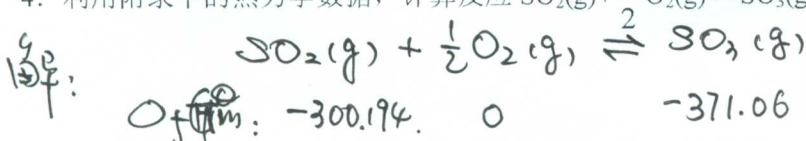 4. 利用附录中的热力学数据，计算反应 SO₂(g)+ O₂(g) SO₃(g
解: SO₂(g) + ½O₂(g) ⇌ SO₃(g)
: -300.194. 0 -371.06